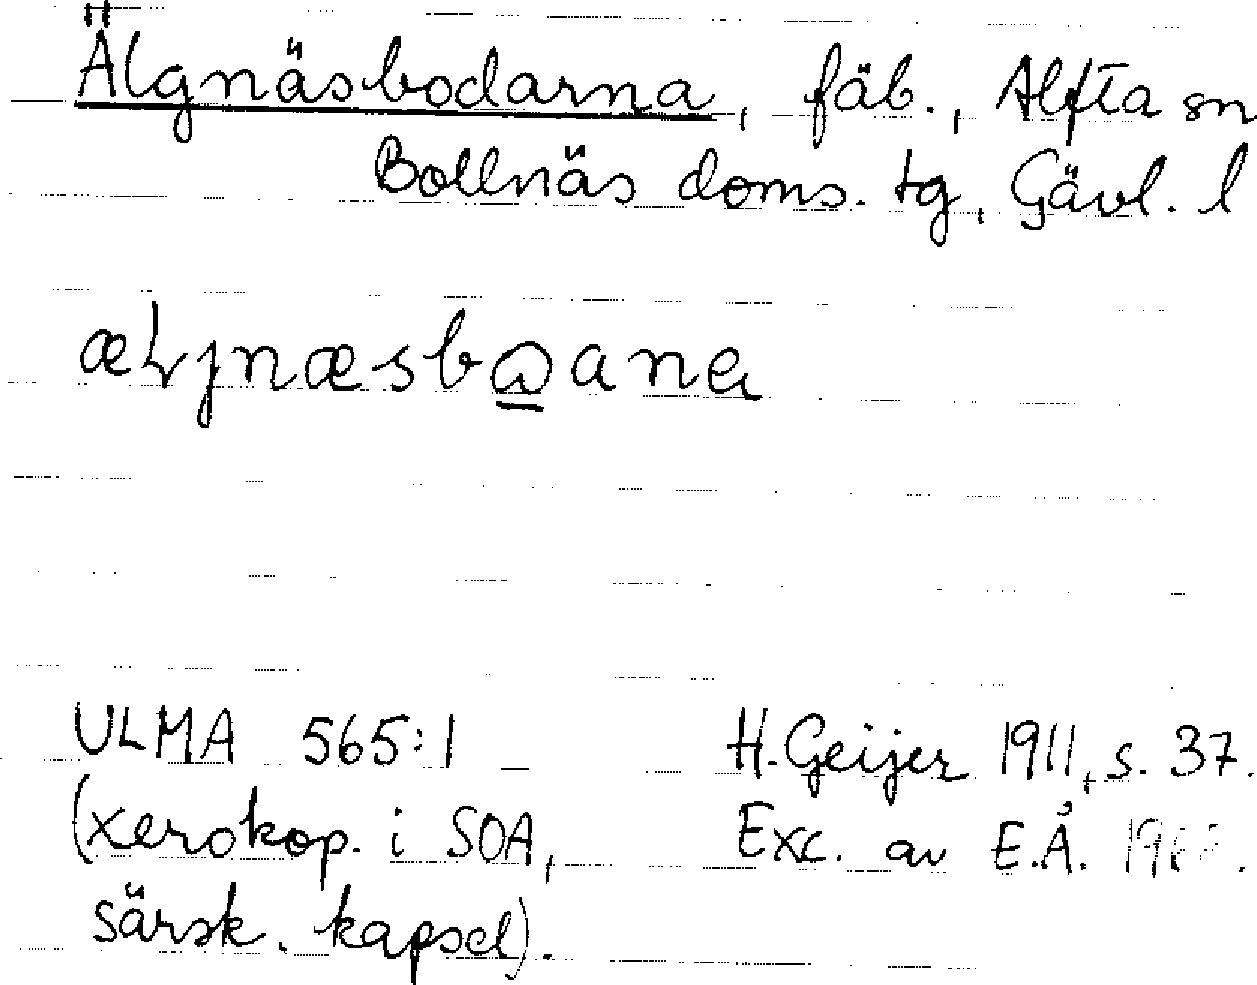 Älgnäsbodarna, fäb., Alfta sn
Bollnäs doms. tg, Gävl. l
ULMA 565:1
H. Geijer 1911, s. 37.
(xerokop. i SOA,
Exc. av E.Å.
särsk. kapsel).